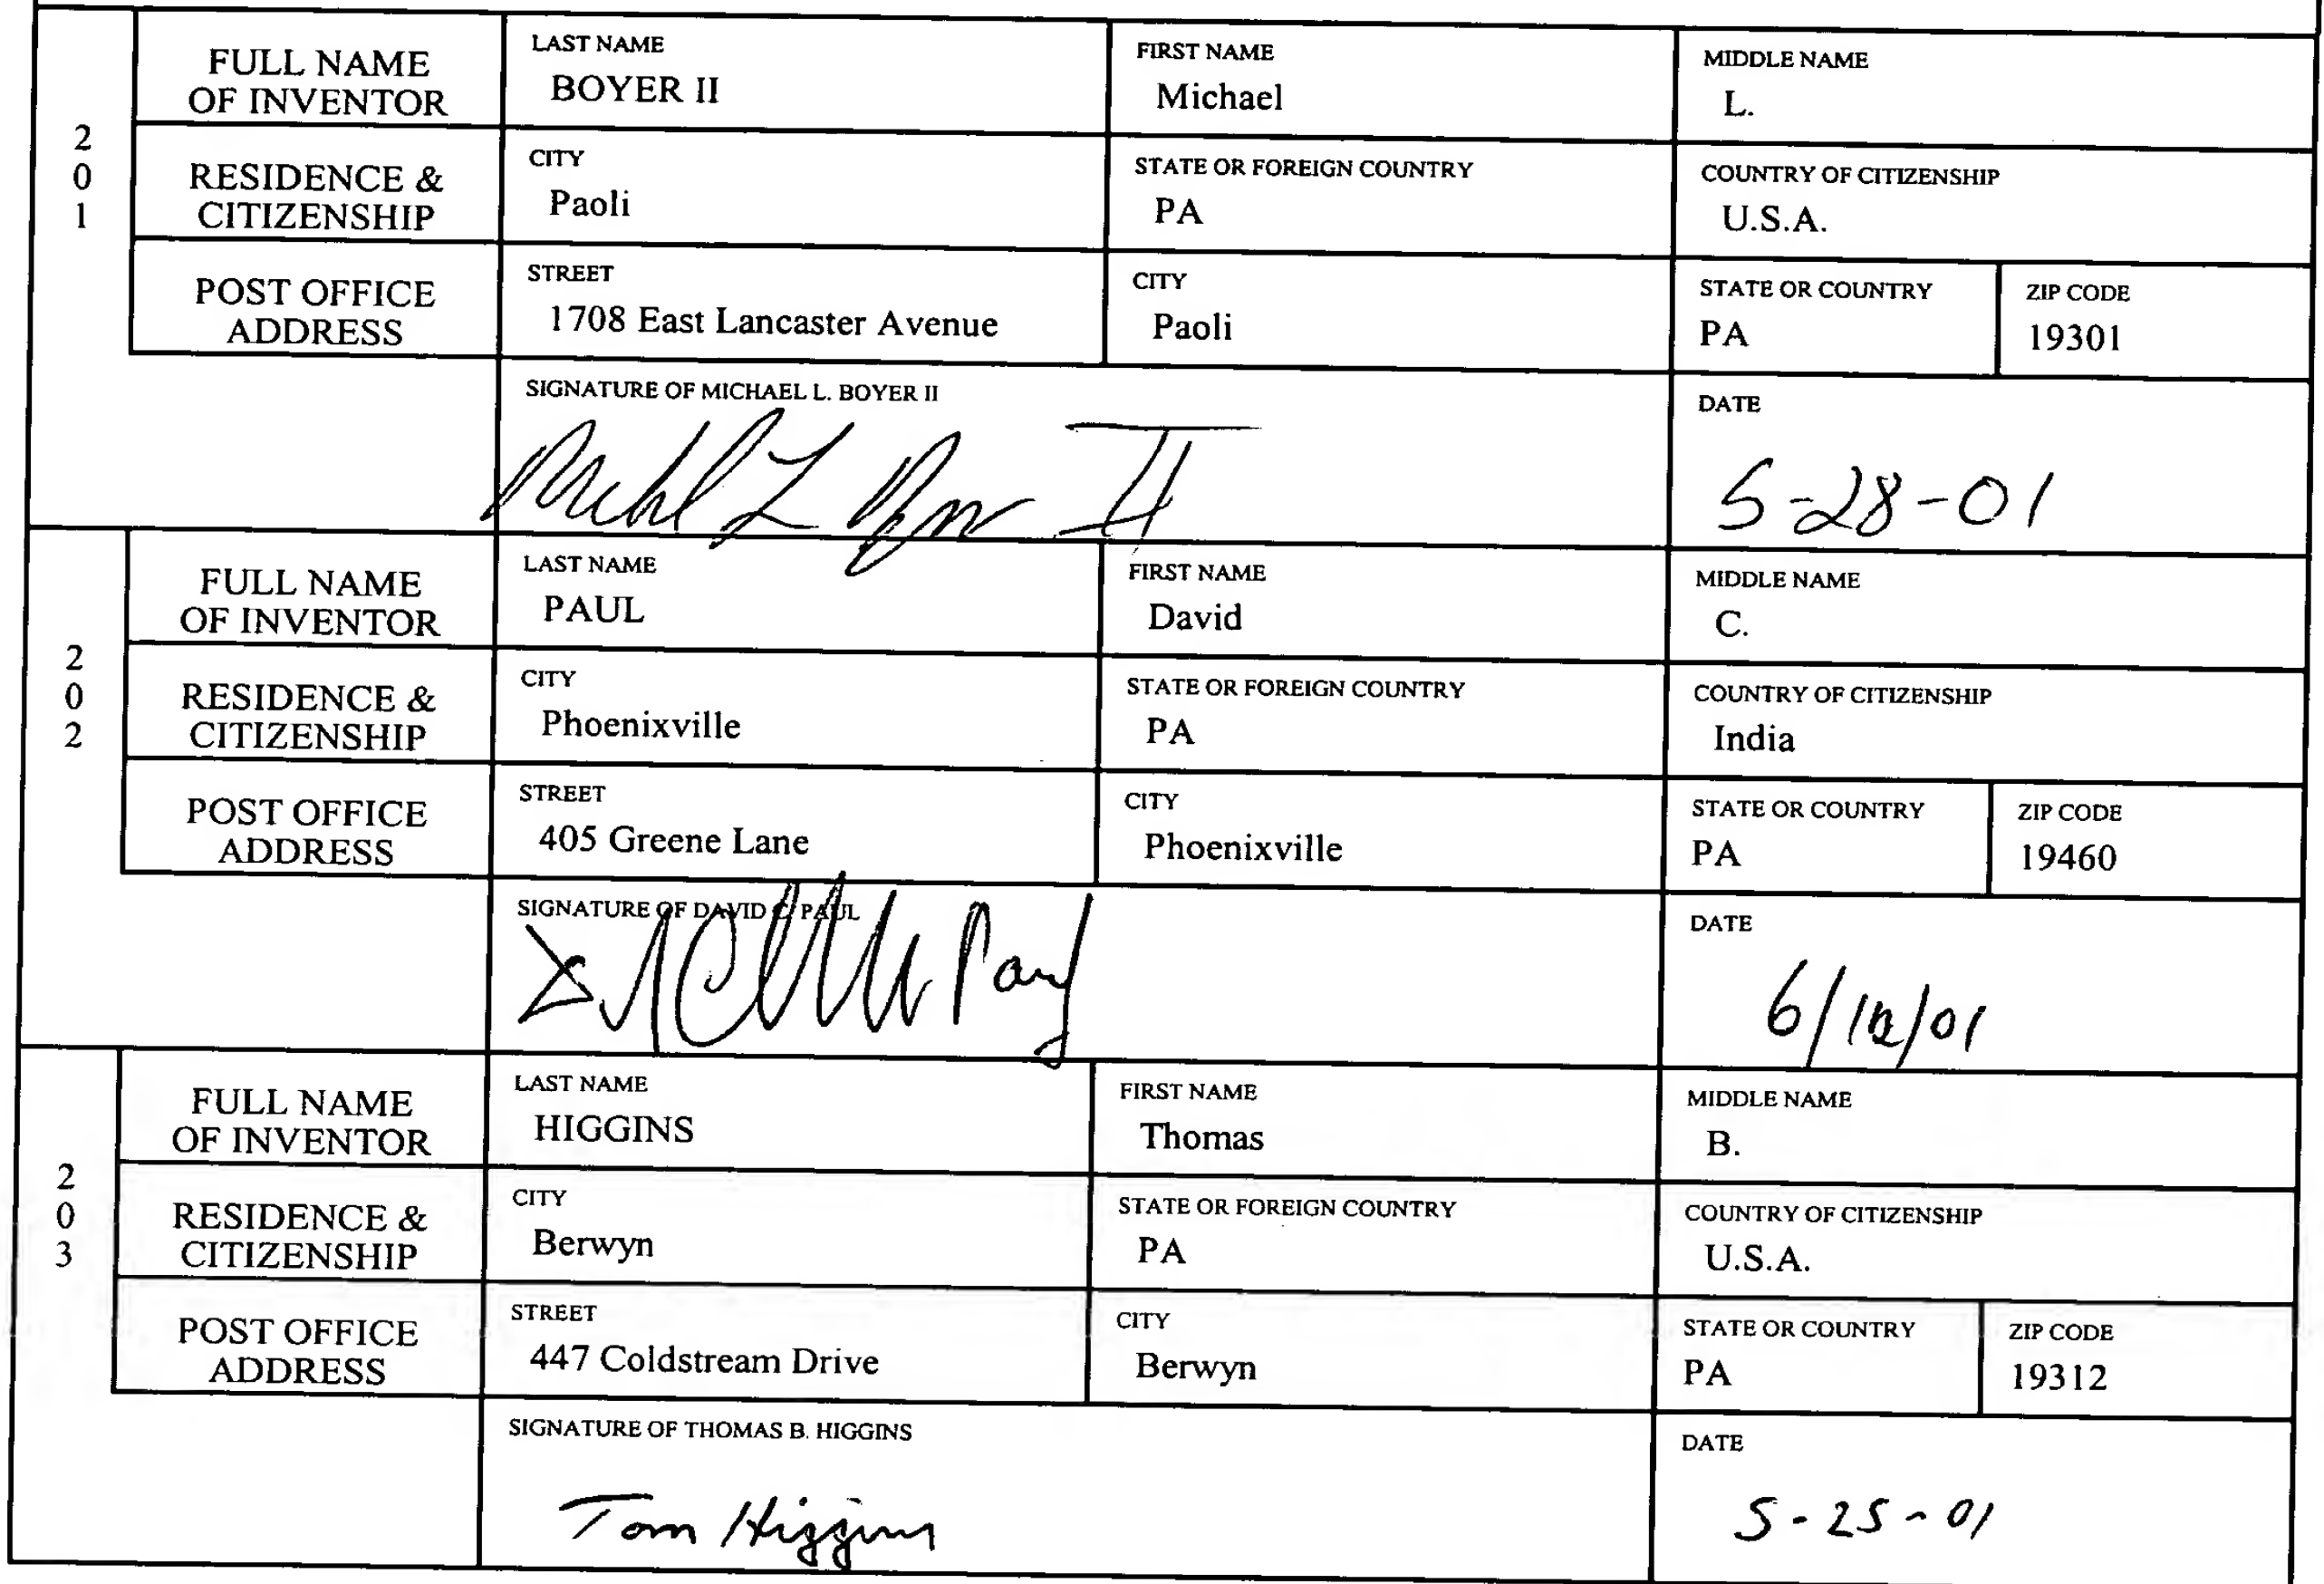 201
FULL NAME OF INVENTOR
LAST NAME
BOYER II
FIRST NAME
Michael
MIDDLE NAME
L.
RESIDENCE & CITIZENSHIP
CITY
Paoli
STATE OR FOREIGN COUNTRY
PA
COUNTRY OF CITIZENSHIP
U.S.A.
POST OFFICE ADDRESS
STREET
1708 East Lancaster Avenue
CITY
Paoli
STATE OR COUNTRY
PA
ZIP CODE
19301
SIGNATURE OF MICHAEL L. BOYER II
DATE
5-28-01
202
FULL NAME OF INVENTOR
LAST NAME
PAUL
FIRST NAME
David
MIDDLE NAME
C.
RESIDENCE & CITIZENSHIP
CITY
Phoenixville
STATE OR FOREIGN COUNTRY
PA
COUNTRY OF CITIZENSHIP
India
POST OFFICE ADDRESS
STREET
405 Greene Lane
CITY
Phoenixville
STATE OR COUNTRY
PA
ZIP CODE
19460
SIGNATURE OF DAVID C. PAUL
DATE
203
FULL NAME OF INVENTOR
LAST NAME
HIGGINS
FIRST NAME
Thomas
MIDDLE NAME
B.
RESIDENCE & CITIZENSHIP
CITY
Berwyn
STATE OR FOREIGN COUNTRY
PA
COUNTRY OF CITIZENSHIP
U.S.A.
POST OFFICE ADDRESS
STREET
447 Coldstream Drive
CITY
Berwyn
STATE OR COUNTRY
PA
ZIP CODE
19312
SIGNATURE OF THOMAS B. HIGGINS
Tom Higgins
DATE
5-25-01